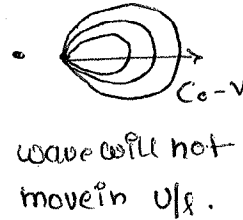 C₀-V
wave will not
move in U/s.